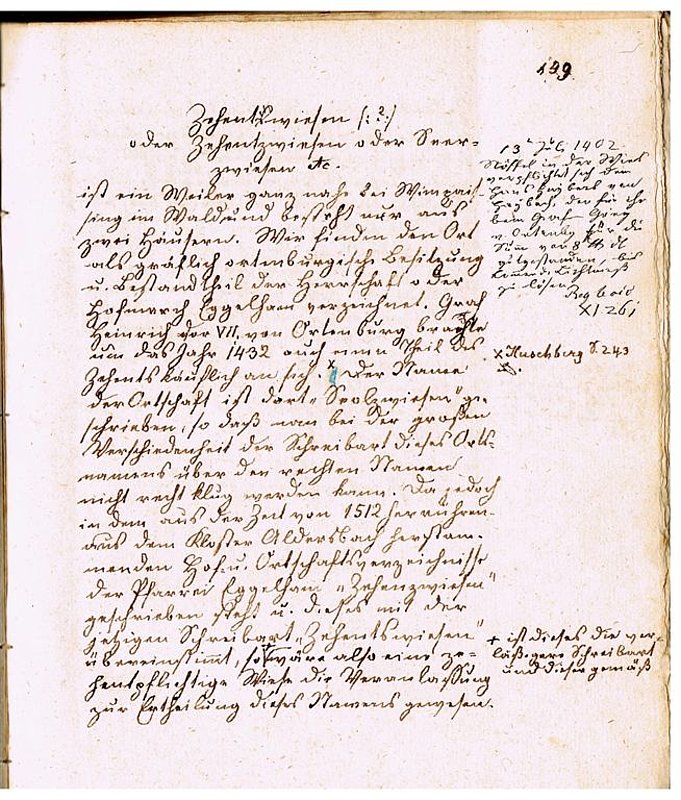 199.
Zehentswiesen (: ? :)
oder Zehentzwiesen oder Seer-
zwiesen etc.
ist ein Weiler ganz nahe bei Wimpais-
sing im Wald und besteht nur aus
zwei Häusern. Wir finden den Ort
als gräflich ortenburgische Besitzung
u. Bestandtheil der Herrschaft oder
Hofmarch Eggelham verzeichnet. Graf
Heinrich der VII. von Ortenburg brachte
um das Jahr 1432 auch einen Theil des
Zehents käuflich an sich. x Der Name
der Ortschaft ist dort „Seolzwiesen“ ge-
schrieben, so daß man bei der großen
Verschiedenheit der Schreibart dieses Orts-
namens über den rechten Namen
nicht recht klug werden kann. Da jedoch
in dem aus der Zeit von 1512 herrühren-
aus dem Kloster Aldersbach herstam-
menden Hof- u. Ortschaftsverzeichnisse
der Pfarrei Eggelham „Zehenzwiesen“
geschrieben steht u. dieses mit der
jetzigen Schreibart „Zehentswiesen“
übereinstimmt, so + wäre also eine ze-
hentpflichtige Wiese die Veranlassung
zur Ertheilung dieses Namens gewesen.
13 July 1402
in der Wies
verpflichtet sich dem
Hans von
der für ihn
beim Graf Görg
v. Ortenbg für die
Sum von 8 ℔ dl
gutgestanden, bis
Lichtmeß
zu lösen
Reg boic
XI 261
x Huschberg S. 243
+ ist dieses die ver-
läßigere Schreibart
und dieser gemäß